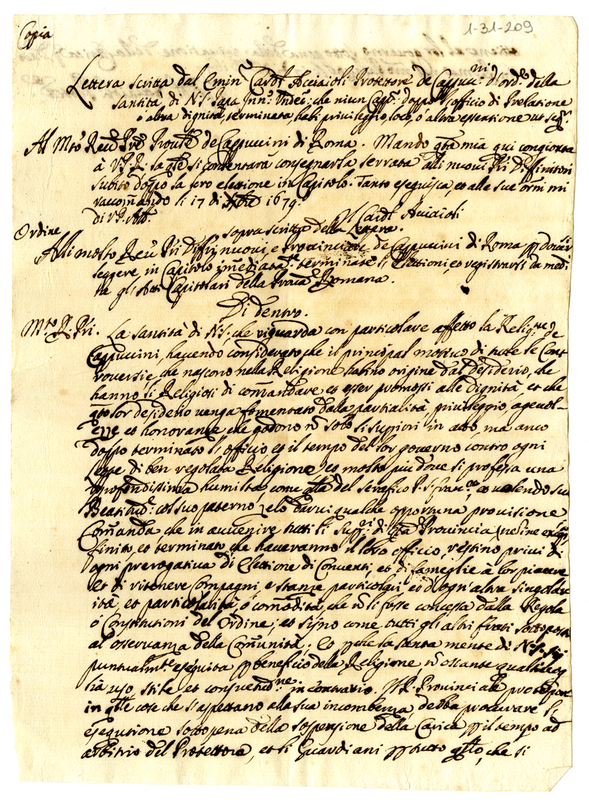 Copia
1-31-209
Lettera scritta dal Emin. Card. Acciaioli Protettore de Cappuc.ni d'ord.e della
Santità di N. S. Papa Inn. Undec. che niun Cap. doppo l'officio di Prelatione
ò altra dignità terminata habbi privilegio, loco, ò altra esentione ut seq.
Al Mto Reu. Pre Prou.le de Cappuccini di Roma. Mando qta mia qui congionta
à V. P. R. la qle si contentarà consegnarla serrata alli nuovi Pri Diffinitori
subito doppo la loro eletione in Capitolo. Tanto eseguisca, et alle sue orni mi
raccomando li 17 di 1679.
di V. P.
Il Card. Acciaioli
sopra scritta della Lettera.
Ordine
Alli molto Reu. Pri Diffri nuoui, e Provinciale de Cappuccini di Roma p douersi
leggere in Capitolo imediatate terminate l'Elettioni, et registrarsi la medma
tra gli Atti Capitolari della Prouia Romana.
Di dentro.
Mto R. Pri. La Santità di N. S. che riguarda con particolare affetto la Religne de
Cappuccini, havendo considerato che il principal motivo di tutte le Cont
rouersie che nascono nella Religione hanno origine dal desiderio, che
hanno li Religiosi di comandare et esser promossi alle dignità, et che
qto lor desiderio venga fomentato dalla partialità, privileggio, ageuol-
ezze et honoranze che godono nō solo li Superiori in atto ma anco
doppo terminato l'officio et il tempo del lor governo contro ogni
legge di ben regolata Religione, et molto più dove si professa una
profondissima humiltà, come qta del serafico P. S. Franc.co, et volendo sua
Beatitud. col suo paterno zelo darui qualche opportuna provisione
Comanda che in auuenire tutti li Supri. di qta Provincia
finito, et terminato che haueranno il loro officio, restino priui di
ogni prerogativa di Elettione di Conventi, et di fameglie à lor piacere
et di ritenere Compagni e stanze particolari, et di ogni altra singolar
ità, et particolarità, ò comodità, che nō li fusse concessa dalla Regola
ò Constitutioni del Ordine; et sijno come tutti gli altri frati sottoposti
al osseruanza della Comunità; Et pche la santa mente di N. S. sij
puntualmte eseguita p beneficio della Religione nō ostante qualsiuog
lia uso, stile et consuetudne. in contrario. Il P. Provinciale pro tempore
in qlle cose che s'aspettano alla sua incombenza debba procurare l'
esequtione sotto pena della sospensione della Carica p il tempo ad
arbitrio del Protettore, et li Guardiani p tutto qllo, che li